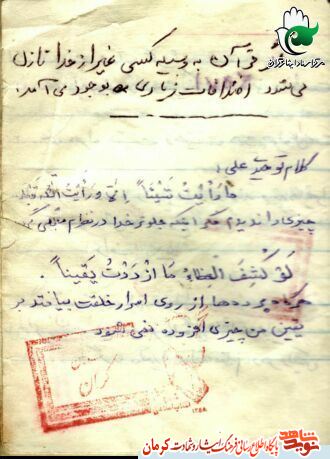 مرکز اسناد ایثارگران
اگر قرآن به وسیله کسی غیر از خدا نازل
می شود اختلافات زیادی به وجود می آمد.
کلام توحید علی:
ما رأیت شیئاً إلا و رأیت الله
چیزی را ندیدم مگر اینکه جلوتر خدا در نظرم
لَوْ کُشِفَ الغطاءُ مَا ازْدَدْتُ یَقیناً.
هرگاه پرده ها از روی اسرار خلقت بیافتد بر
یقین من چیزی افزوده نمی شود
کرمان
نوید شاهد
پایگاه اطلاع رسانی فرهنگ ایثار و شهادت کرمان